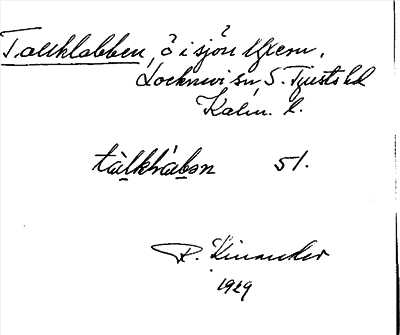 Tallklabben, ö i sjön Yxern.
Locknevi sn, S. Tjusts hd
Kalm. l.
51.
R. Kinander
1929